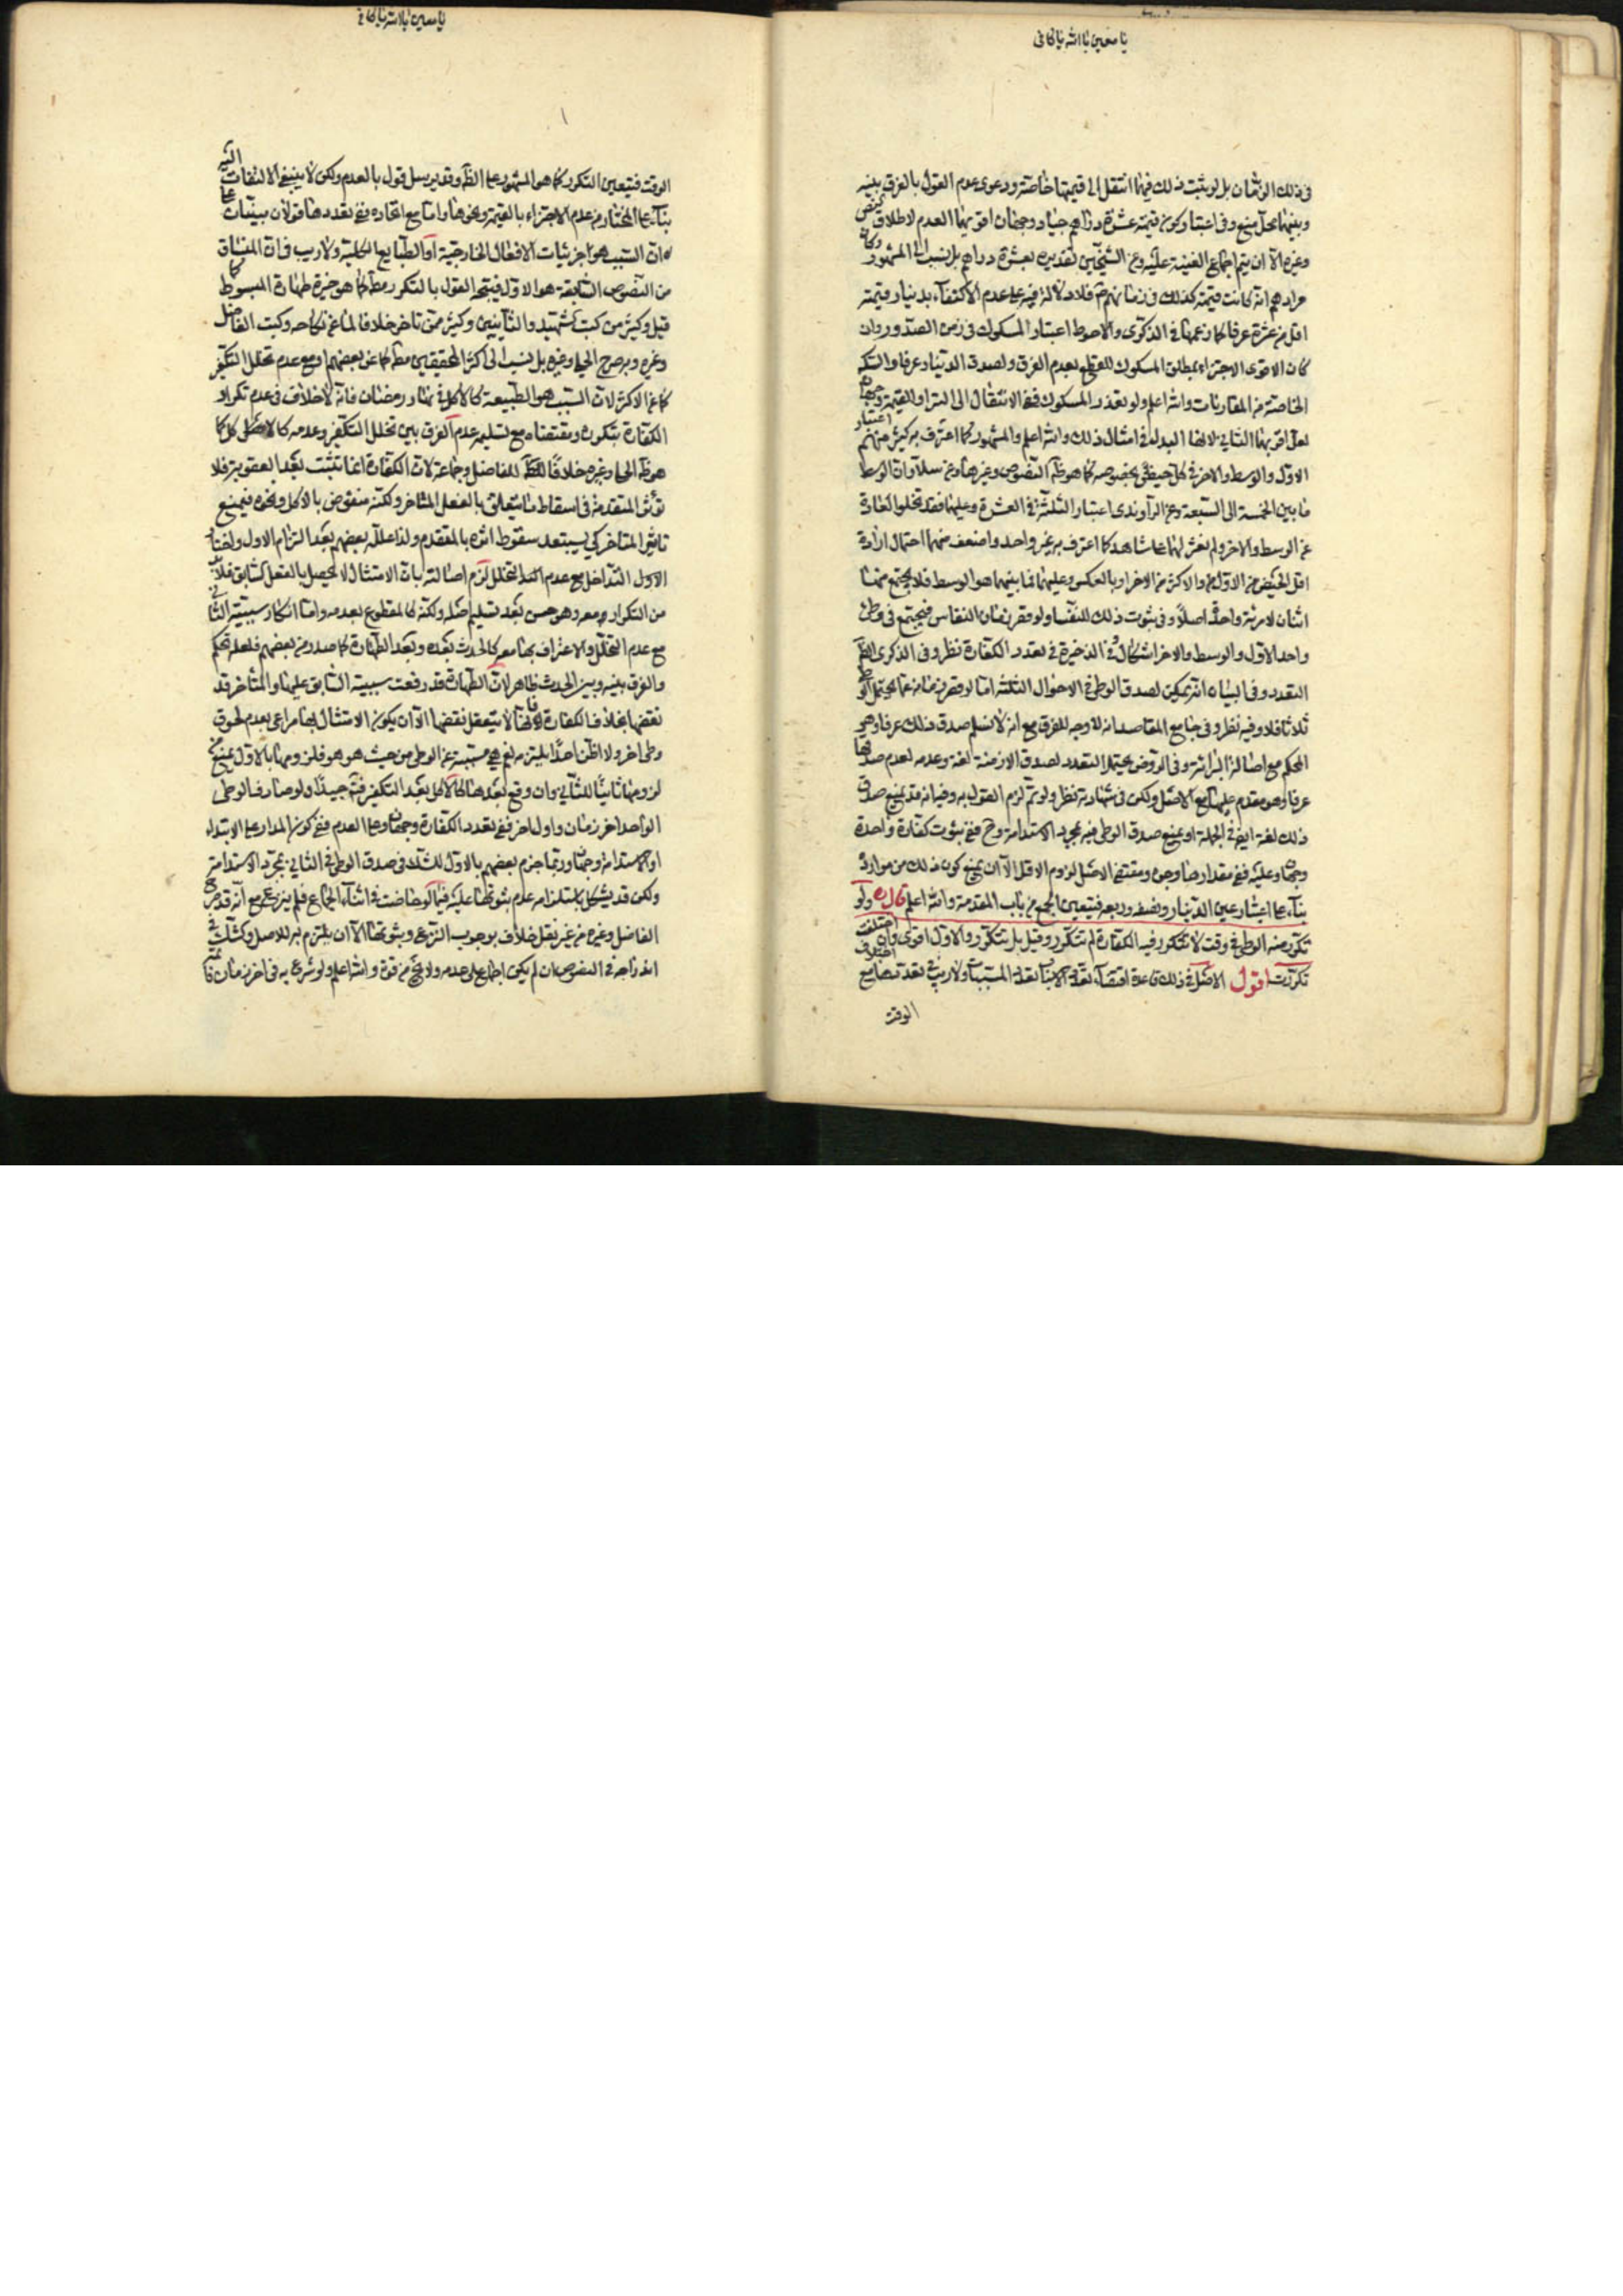 يا معين يا الله يا كافى
فى ذلك الوثمان بل لو يثبت ذلك فيها انتقل الى قيمتها خاصة ودعوى عدم القول بالفرق بينه
وبينهما محل منع وفى اعتبار كون قيمته عشرة دراهم جياد وجهان اقويهما العدم لاطلاق النص
وغيره الا ان يتم اجماع الغنية عليه وعن الشيخين تقديره بعشرة دراهم بل نسب الى المشهور وكان
مرادهم انه كانت قيمته كذلك فى زمانهم فلا دلالة فيه على عدم الاكتفاء بدينار قيمته
اقل من عشرة عرفا كما زعمها فى الذكرى والاحوط اعتبار المسكوك فى زمن الصدور وان
كان الاقوى الاجتزاء بمطلق المسكوك للقطع بعدم الفرق ولصدق الدينار عرفا والسكة
الخاصة من المقارنات والله اعلم ولو تعذر المسكوك ففى الانتقال الى التبر او القيمة وجهان
لعل اقربهما الثانى لانها البدل فى امثال ذلك والله اعلم والمشهور كما اعترف به كثير منهم اعتبار
الاول والوسط والاخر فى كل حيض بخصوصه كما هو ظ النصوص وغيرها وعن سلار ان الوسط
ما بين الخمسة الى السبعة وعن الراوندى اعتبار الثلثة فى العشرة وعليهما فقد تخلوا العادة
عن الوسط والاخر ولم نعثر لهما على شاهد كما اعترف به غير واحد واضعف منهما احتمال ارادة
اقل الحيض من الاول والاكثر من الاخر او بالعكس وعليهما فما بينهما هو الوسط فلا يجتمع منها
اثنان لامرئة واحدة اصلا وفى ثبوت ذلك للنفساء ولو قصر زمان النفاس فيجتمع فى وطئ
واحد الاول والوسط والاخر اشكال وفى الذخيرة فى تعدد الكفارة نظر وفى الذكرى الظ
التعدد وفى البيان انه يمكن لصدق الوطى فى الاحوال الثلثة اما لو قصر زمانه عما يحتمل الوطى
ثلاثا فلا وفيه نظر وفى جامع المقاصد انه لا وجه للفرق مع انه لا نسلم صدق ذلك عرفا وهو
المحكم مع اصالة البرائة وفى الروض يحتمل التعدد لصدق الازمنة لغة وعدمه لعدم صدقها
عرفا وهو مقدم عليها مع الاصل ولكن فى شهادته نظر ولو تم لزم القول به وفيه انه قد يمنع صدق
ذلك لغة ايض فى الجملة او يمنع صدق الوطى فيه بمجرد الاستدامة وح ففى ثبوت كفارة واحدة
وجهان وعليه ففى مقدارها وجوه ومقتضى الاصل لزوم الاقل الا ان يمنع كون ذلك من موارده
بناء على اعتبار عين الدينار ونصفه وربعه فيتعين الجمع من باب المقدمة والله اعلم قال ره ولو
تكرر منه الوطى فى وقت لا تتكرر فيه الكفارة لم تتكرر وقيل بل تتكرر والاول اقوى وان اختلفت
تكررت اقول الاصل فى ذلك قاعدة اقتضاء تعدد الاسباب تعدد المسببات ولا ريب فى تعدده مع اختلاف
الوقت
يا معين يا الله يا كافى
الوقت فيتعين التكرر كما هو المشهور على الظ وقد يرسل قول بالعدم ولكن لا ينبغى الالتفات اليه
بناء على المختار من عدم الاجتزاء بالقيمة ونحوها واما مع اتحاده ففى تعددها قولان مبنيان على
ان السبب هو جزئيات الافعال الخارجية او الطبايع الكلية ولا ريب فى ان المنساق
من النصوص السابقة هو الاول فيتجه القول بالتكرر مط كما هو خيرة طهارة المبسوط كما
قيل وكثير من كتب الشهيد والثانيين وكثير ممن تاخر خلافا لما عن نكاحه وكتب الفاضل
وغيره وبه صرح الحلى وغيره بل نسب الى اكثر المحققين مط كما عن بعضهم او مع عدم تخلل التكفير
كما عن الاكثر لان السبب هو الطبيعة كالاكل فى نهار رمضان فانه لا خلاف فى عدم تكرار
الكفارة بتكرره ومقتضاه مع تسليمه عدم الفرق بين تخلل التكفير وعدمه كالاصل كما
هو ظ الحلى وغيره خلافا للفاضل وجماعة لان الكفارة انما تثبت بعد العقوبة فلا
تؤثر المتقدمة فى اسقاط ما يتعلق بالفعل المتاخر ولكنه منقوض بالاكل ونحوه فيمنع
تاثير المتاخر كى يستبعد سقوط اثره بالمتقدم ولذا علله بعضهم بعد التزام الاول واختيار
الاول التداخل مع عدم التخلل لزم اصالته بان الامتثال لا يحصل بالفعل السابق فلا بد
من التكرار معه وهو حسن بعد تسليم اصله ولكنه كالمقطوع بعدمه واما انكار سببية الثانى
مع عدم التخلل والاعتراف بها معه كالحدث بعده وبعد الطهارة كما صدر من بعضهم فلعله تحكم
والفرق بينه وبين الحدث ظاهر لان الطهارة قد رفعت سببية السابق عليها والمتاخر قد
نقضها بخلاف الكفارة فانها لا يتعقل نقضها الا ان يكون الامتثال بها مراعى بعدم لحوق
وطى اخر ولا اظن احدا يلتزمه نعم هى مسببة عن الوطى من حيث هو هو فلزومها بالاول يمنع من
لزومها ثانيا للثانى وان وقع بعدها كالاكل بعد التكفير فتم جيدا ولو صادف الوطى
الواحد اخر زمان واول اخر ففى تعدد الكفارة وجهان وعلى العدم ففى كون المدار على الابتداء
او الاستدامة وجهان وربما جزم بعضهم بالاول للشك فى صدق الوطى فى الثانى بمجرد الاستدامة
ولكن قد يشكل باستلزامه عدم ثبوتها عليه فيما لو حاضت فى اثناء الجماع فلم ينزع مع انه قد صرح
الفاضل وغيره من غير نقل خلاف بوجوب النزع وثبوتها الا ان يلتزم به للاصل وللشك فى
اندراجه فى النصوص ان لم يكن اجماع على عدمه ولا يخ من قوة والله اعلم ولو شرع به فى اخر زمان